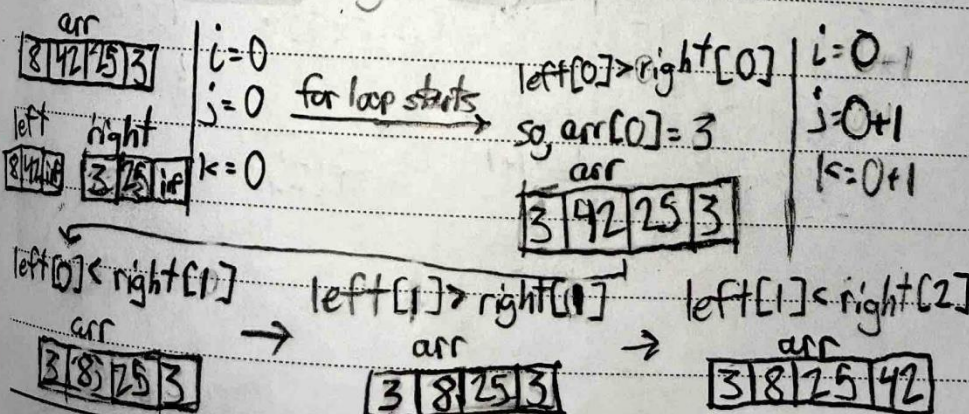 arr
8 42 25 3
left right
8 42 inf 3 25 inf
i=0
j=0
k=0
for loop starts
left[0]>right[0]
so, arr[0]=3
arr
3 42 25 3
i=0
j=0+1
k=0+1
left[0]<right[1]
arr
3 8 25 3
→
left[1]>right[1]
arr
3 8 25 3
→
left[1]<right[2]
arr
3 8 25 42